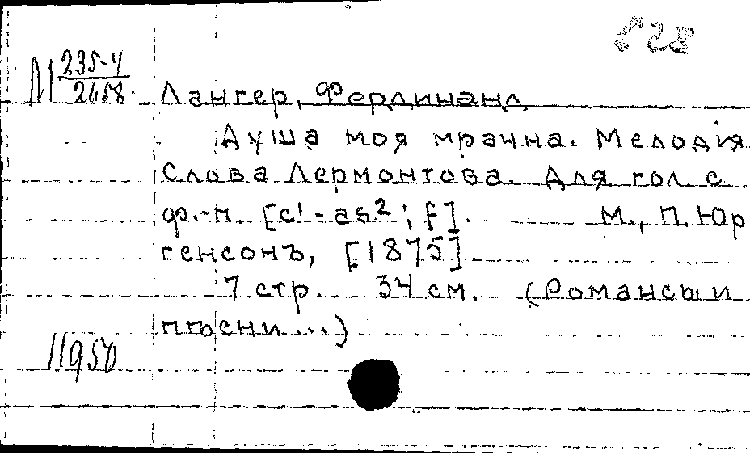 828
М 235-4
2658
Лангер, Фердинанд
Душа моя мрачна. Мелодiя
Слова Лермонтова. Для гол с
ф.-п. [c¹-as²; f]. М., П. Юр
генсонъ, [1875]
7 стр. 34 см. (Романсы и
пѣсни...)
11950